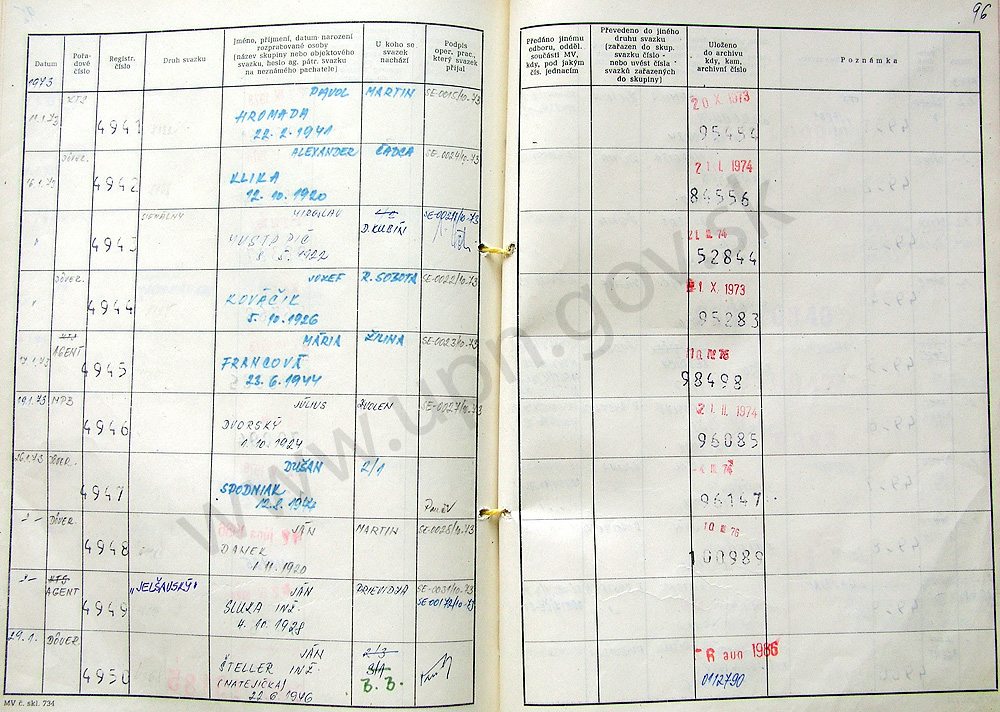 96
Datum
Pořadové číslo
Registr. číslo
Druh svazku
Jméno, příjmení, datum narození rozpracované osoby (název skupiny nebo objektového svazku, heslo ag. pátr. svazku na neznámého pachatele)
U koho se svazek nachází
Podpis oper. prac., který svazek přijal
Předáno jinému odboru, odděl. součásti MV, kdy, pod jakým čís. jednacím
Převedeno do jiného druhu svazku (zařazen do skup. svazku číslo - nebo uvést čísla svazků zařazených do skupiny)
Uloženo do archivu kdy, kam, archivní číslo
Poznámka
1973
KTS PAVOL MARTIN SE-0015/10-73 20 X. 1973
11.1.73 4941 HROMADA 95454
22.2.1941
DÔVER. ALEXANDER ČADCA SE-0024/10-73 21. I. 1974
16.1.73 4942 KLIKA 84556
12.10.1920
D.KUBÍN
4943 52844
1922
DÔVER. JOZEF R. SOBOTA SE-0022/10-73 X. 1973
" 4944 KOVÁČIK 95283
5.10.1926
KTS MÁRIA ŽILINA SE-0023/10-73 10. III 76
AGENT
17.1.73 4945 FRANCOVÁ 98498
23.6.1944
19.1.73 MPB JÚLIUS ZVOLEN SE-0027/10-73 21. II. 1974
4946 DVORSKÝ 96085
1.10.1924
26.1.73 DÔVER. DUŠAN 2/1
4947 SPODNIAK 96147
12.2.1944
-"- DÔVER. JÁN MARTIN SE-0028/10-73 10. III 76
4948 DANEK 100989
1.11.1920
-"- KTS "JELŠAVSKÝ" JÁN PRIEVIDZA SE-0031/10-73
AGENT SE-00172/10-75
4949 SLUKA INŽ.
4.10.1928
29.1. DÔVER. JÁN 2/3 -6 aug 1986
4950 ŠTELLER INŽ. 3/1 0112790
(MATEJIČKA) 3.3.
22.6.1946
MV č. skl. 734
www.upn.gov.sk